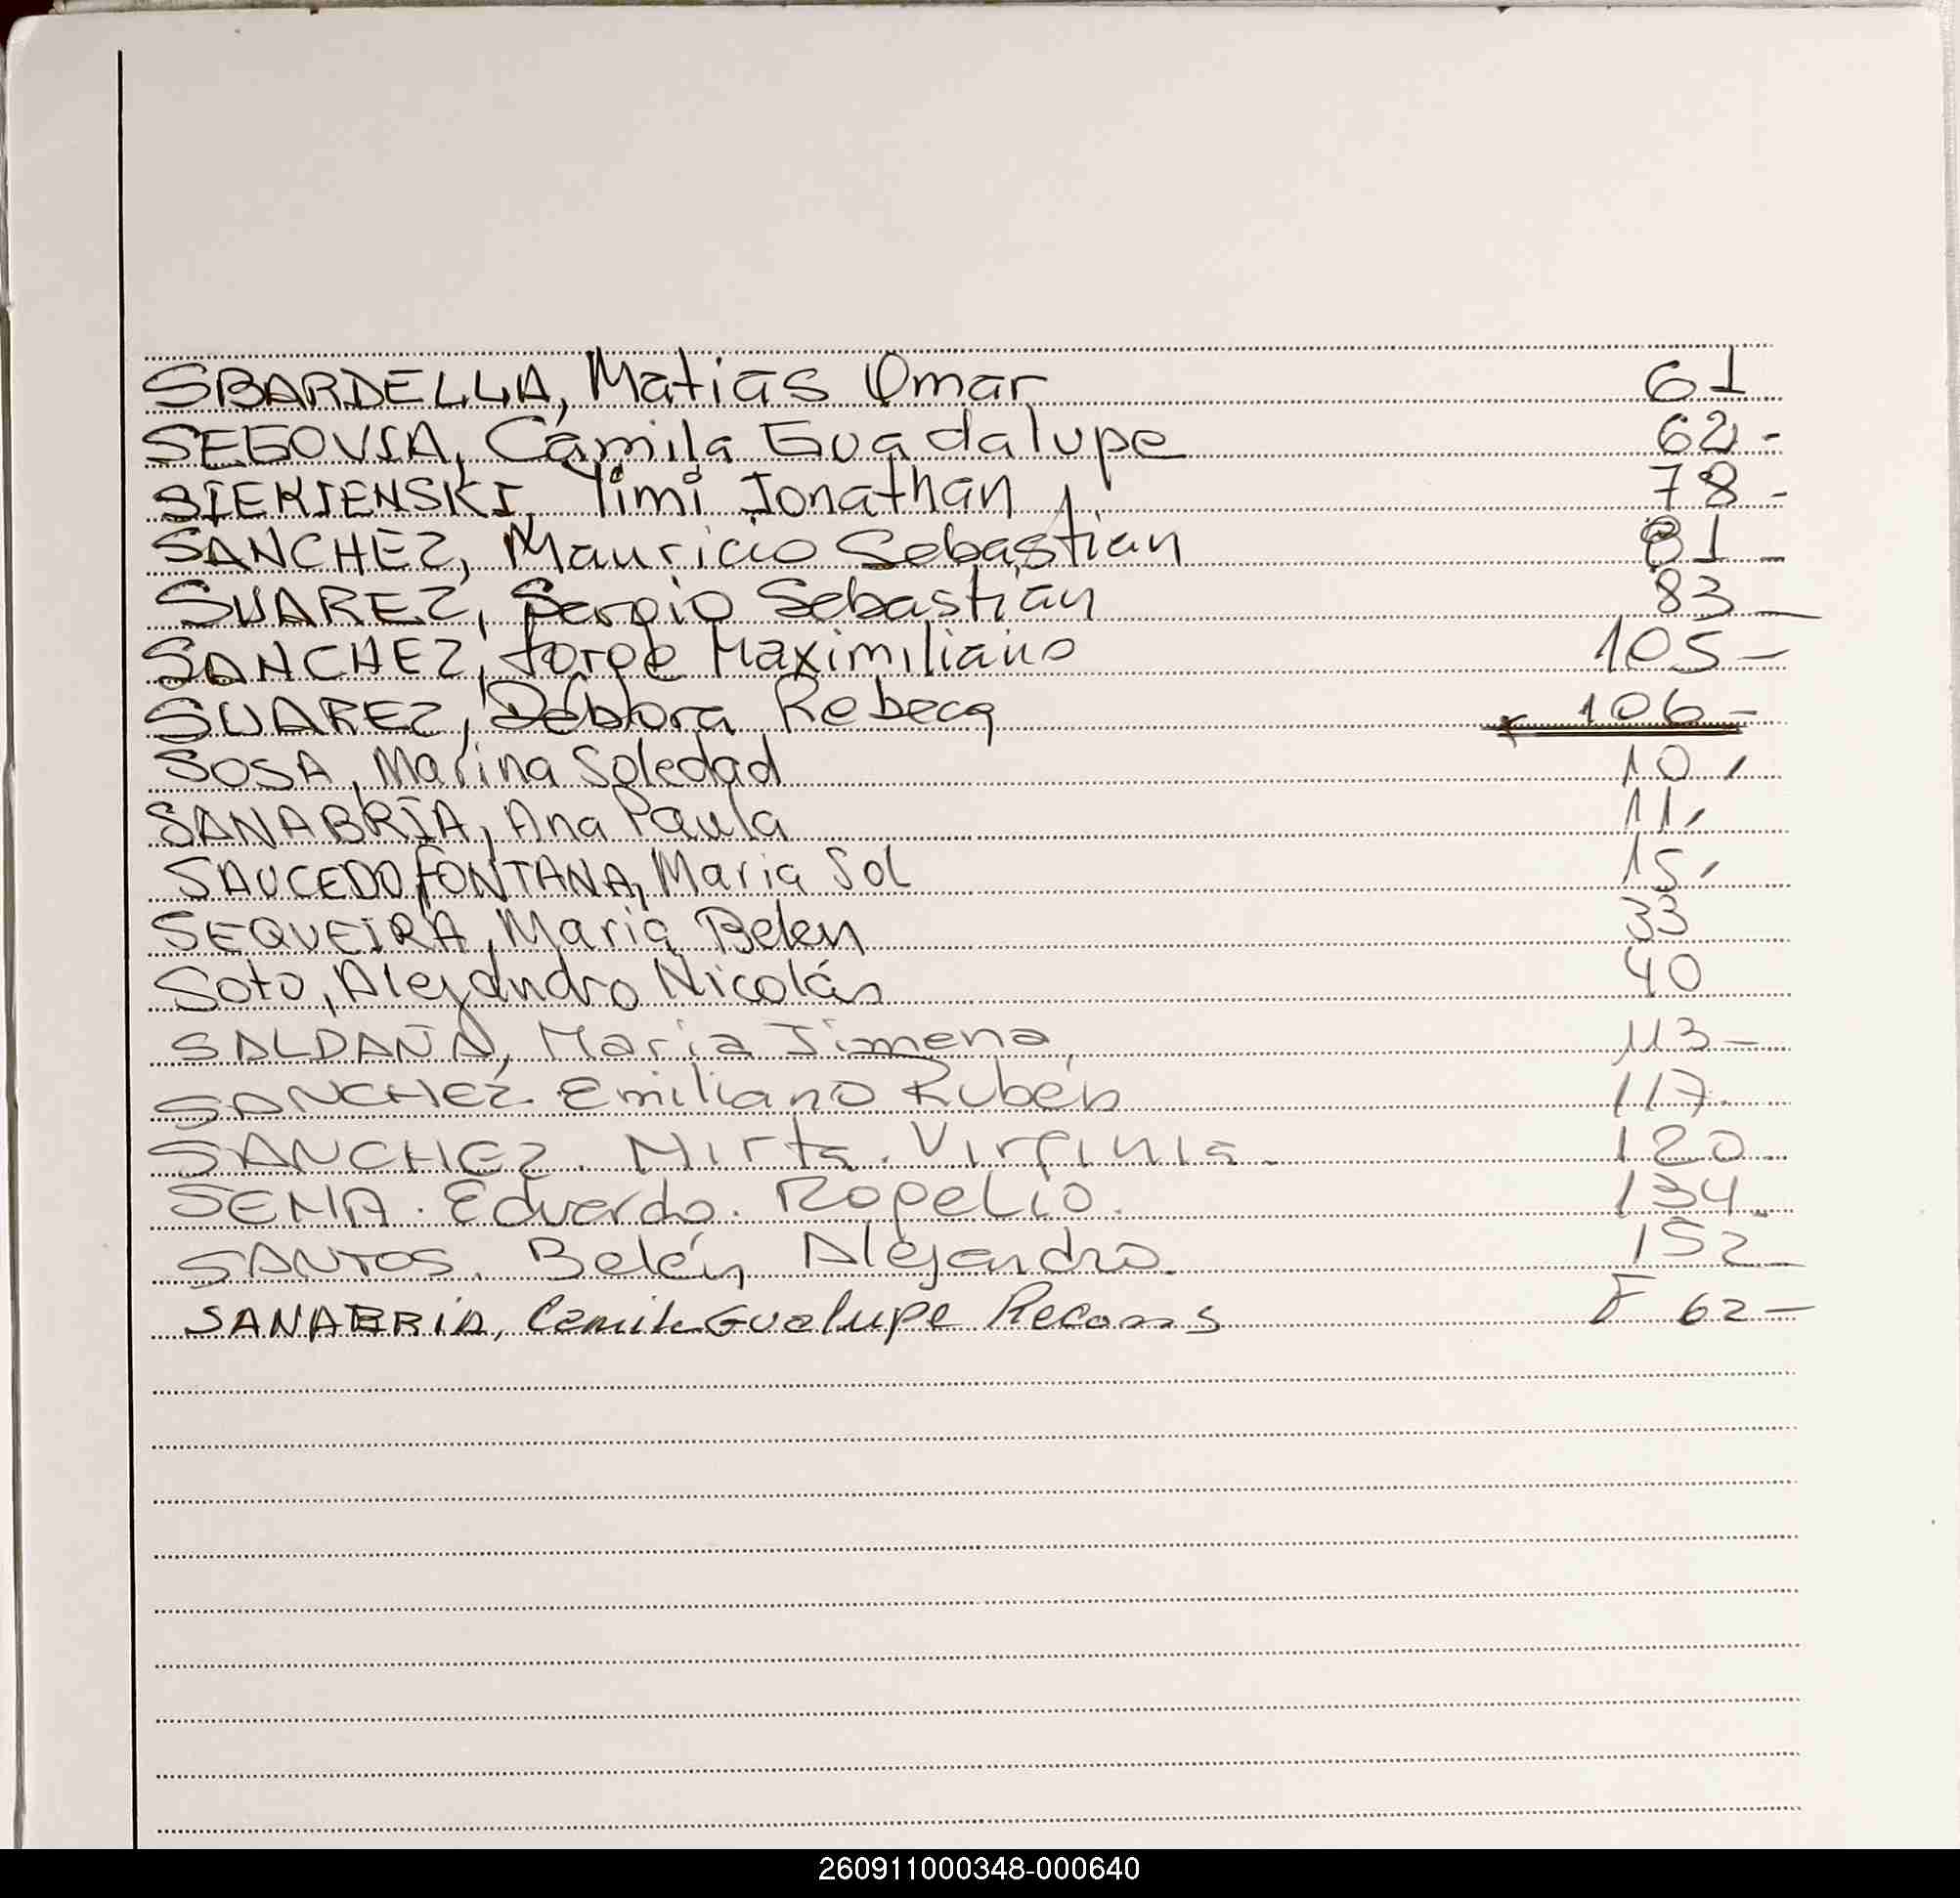 SBARDELLA, Matías Omar 61
SEGOVIA, Camila Guadalupe 62-
SIEKIENSKI, Yimi Jonathan 78-
SANCHEZ, Mauricio Sebastián 81-
SUAREZ, Sergio Sebastián 83-
SANCHEZ, Jorge Maximiliano 105-
SUAREZ, Débora Rebeca 106-
SOSA, Marina Soledad 10,
SANABRIA, Ana Paula 11,
SAUCEDO FONTANA, Maria Sol 15,
SEQUEIRA, Maria Belen 33
Soto, Alejandro Nicolás 40
SALDAÑA, Maria Jimena 113-
SANCHEZ. Emiliano Rubén 117.
SANCHEZ. Mirta. Virginia. 120.
SENA. Eduardo. Rogelio. 134.
SANTOS. Belén Alejandro. 152
SANABRIA, Camila Gualupe Recons F 62-
260911000348-000640